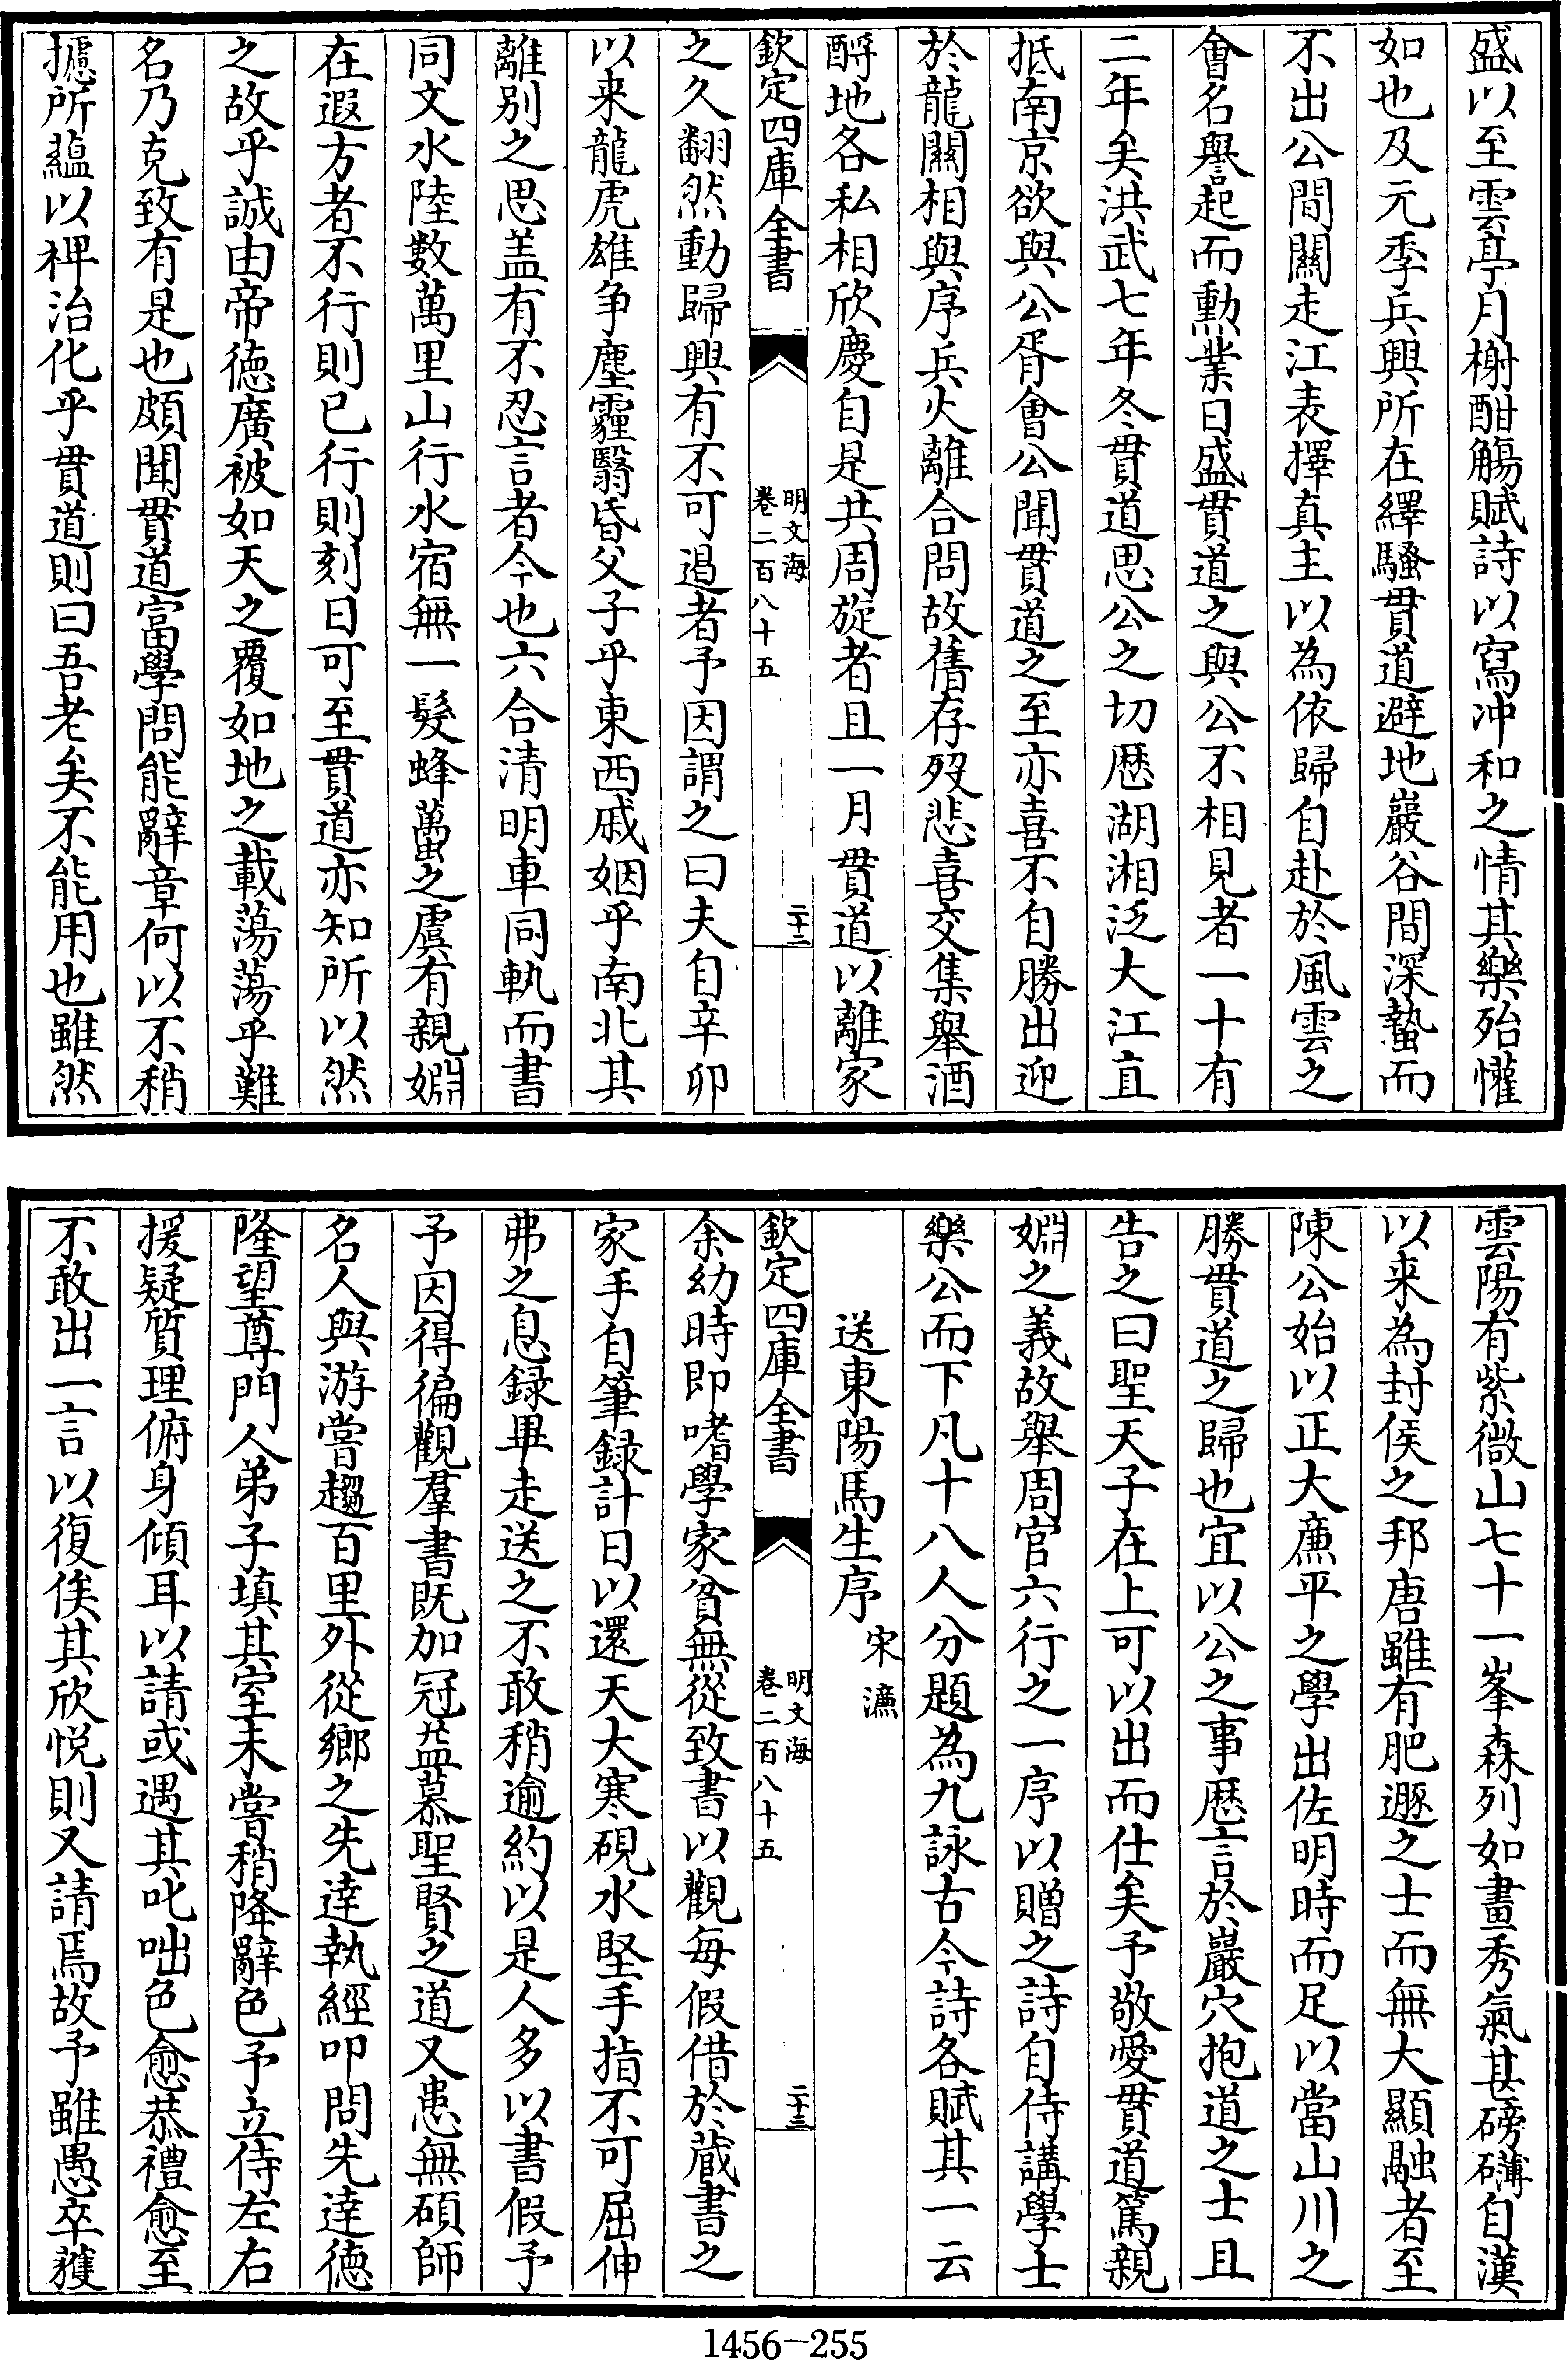 盛以至雲亭月榭酣觴賦詩以寫冲和之情其樂殆懽
如也及元季兵興所在繹騷貫道避地巖谷間深蟄而
不出公間關走江表擇真主以為依歸自赴於風雲之
會名譽起而勳業日盛貫道之與公不相見者一十有
二年矣洪武七年冬貫道思公之切歴湖湘泛大江直
抵南京欲與公胥會公聞貫道之至亦喜不自勝出迎
於龍關相與序兵火離合問故舊存殁悲喜交集舉酒
酹地各私相欣慶自是共周旋者且一月貫道以離家
欽定四庫全書
明文海
卷二百八十五
二十二
之久翻然動歸興有不可遏者予因謂之曰夫自辛卯
以来龍虎雄争塵霾翳昏父子乎東西戚姻乎南北其
離别之思盖有不忍言者今也六合清明車同軌而書
同文水陸數萬里山行水宿無一髮蜂蠆之虞有親婣
在遐方者不行則已行則刻日可至貫道亦知所以然
之故乎誠由帝徳廣被如天之覆如地之載蕩蕩乎難
名乃克致有是也頗聞貫道富學問能辭章何以不稍
攄所蘊以裨治化乎貫道則曰吾老矣不能用也雖然
雲陽有紫微山七十一峯森列如畫秀氣甚磅礴自漢
以来為封侯之邦唐雖有肥遯之士而無大顯融者至
陳公始以正大亷平之學出佐明時而足以當山川之
勝貫道之歸也宜以公之事歴言於巖穴抱道之士且
告之曰聖天子在上可以出而仕矣予敬愛貫道篤親
婣之義故舉周官六行之一序以贈之詩自侍講學士
樂公而下凡十八人分題為九詠古今詩各賦其一云
送東陽馬生序
宋濂
欽定四庫全書
明文海
卷二百八十五
二十三
余幼時即嗜學家貧無從致書以觀每假借於藏書之
家手自筆録計日以還天大寒硯水堅手指不可屈伸
弗之怠録畢走送之不敢稍逾約以是人多以書假予
予因得徧觀羣書既加冠益慕聖賢之道又患無碩師
名人與游嘗趨百里外從鄉之先達執經叩問先達徳
隆望尊門人弟子填其室未嘗稍降辭色予立侍左右
援疑質理俯身傾耳以請或遇其叱咄色愈恭禮愈至
不敢出一言以復俟其欣悦則又請焉故予雖愚卒獲
1456-255